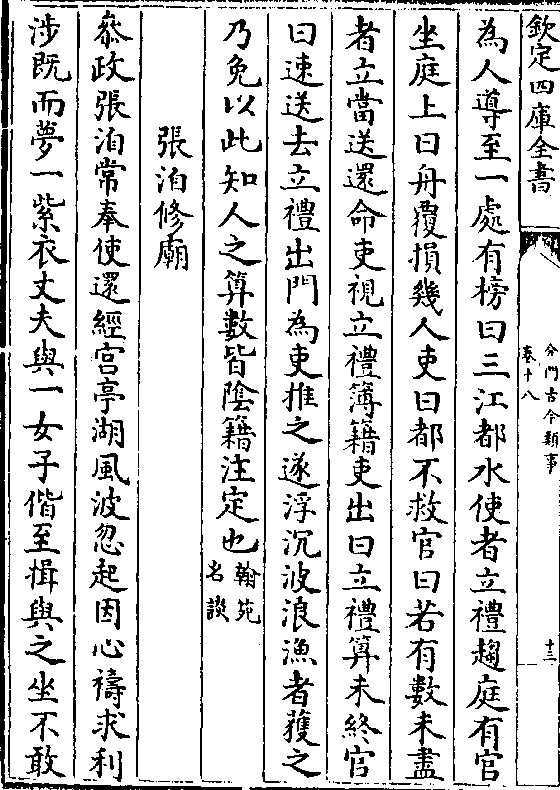 欽定四庫全書
分門古今類事
卷十八
十三
為人導至一處有榜曰三江都水使者立禮趨庭有官
坐庭上曰舟覆損幾人吏曰都不救官曰若有數未盡
者立當送還命吏視立禮簿籍吏出曰立禮算未終官
曰速送去立禮出門為吏推之遂浮沉波浪漁者獲之
乃免以此知人之算數皆陰籍注定也翰苑
名談
張洎修廟
叅政張洎常奉使還經宫亭湖風波忽起因心禱求利
涉既而夢一紫衣丈夫與一女子偕至揖與之坐不敢